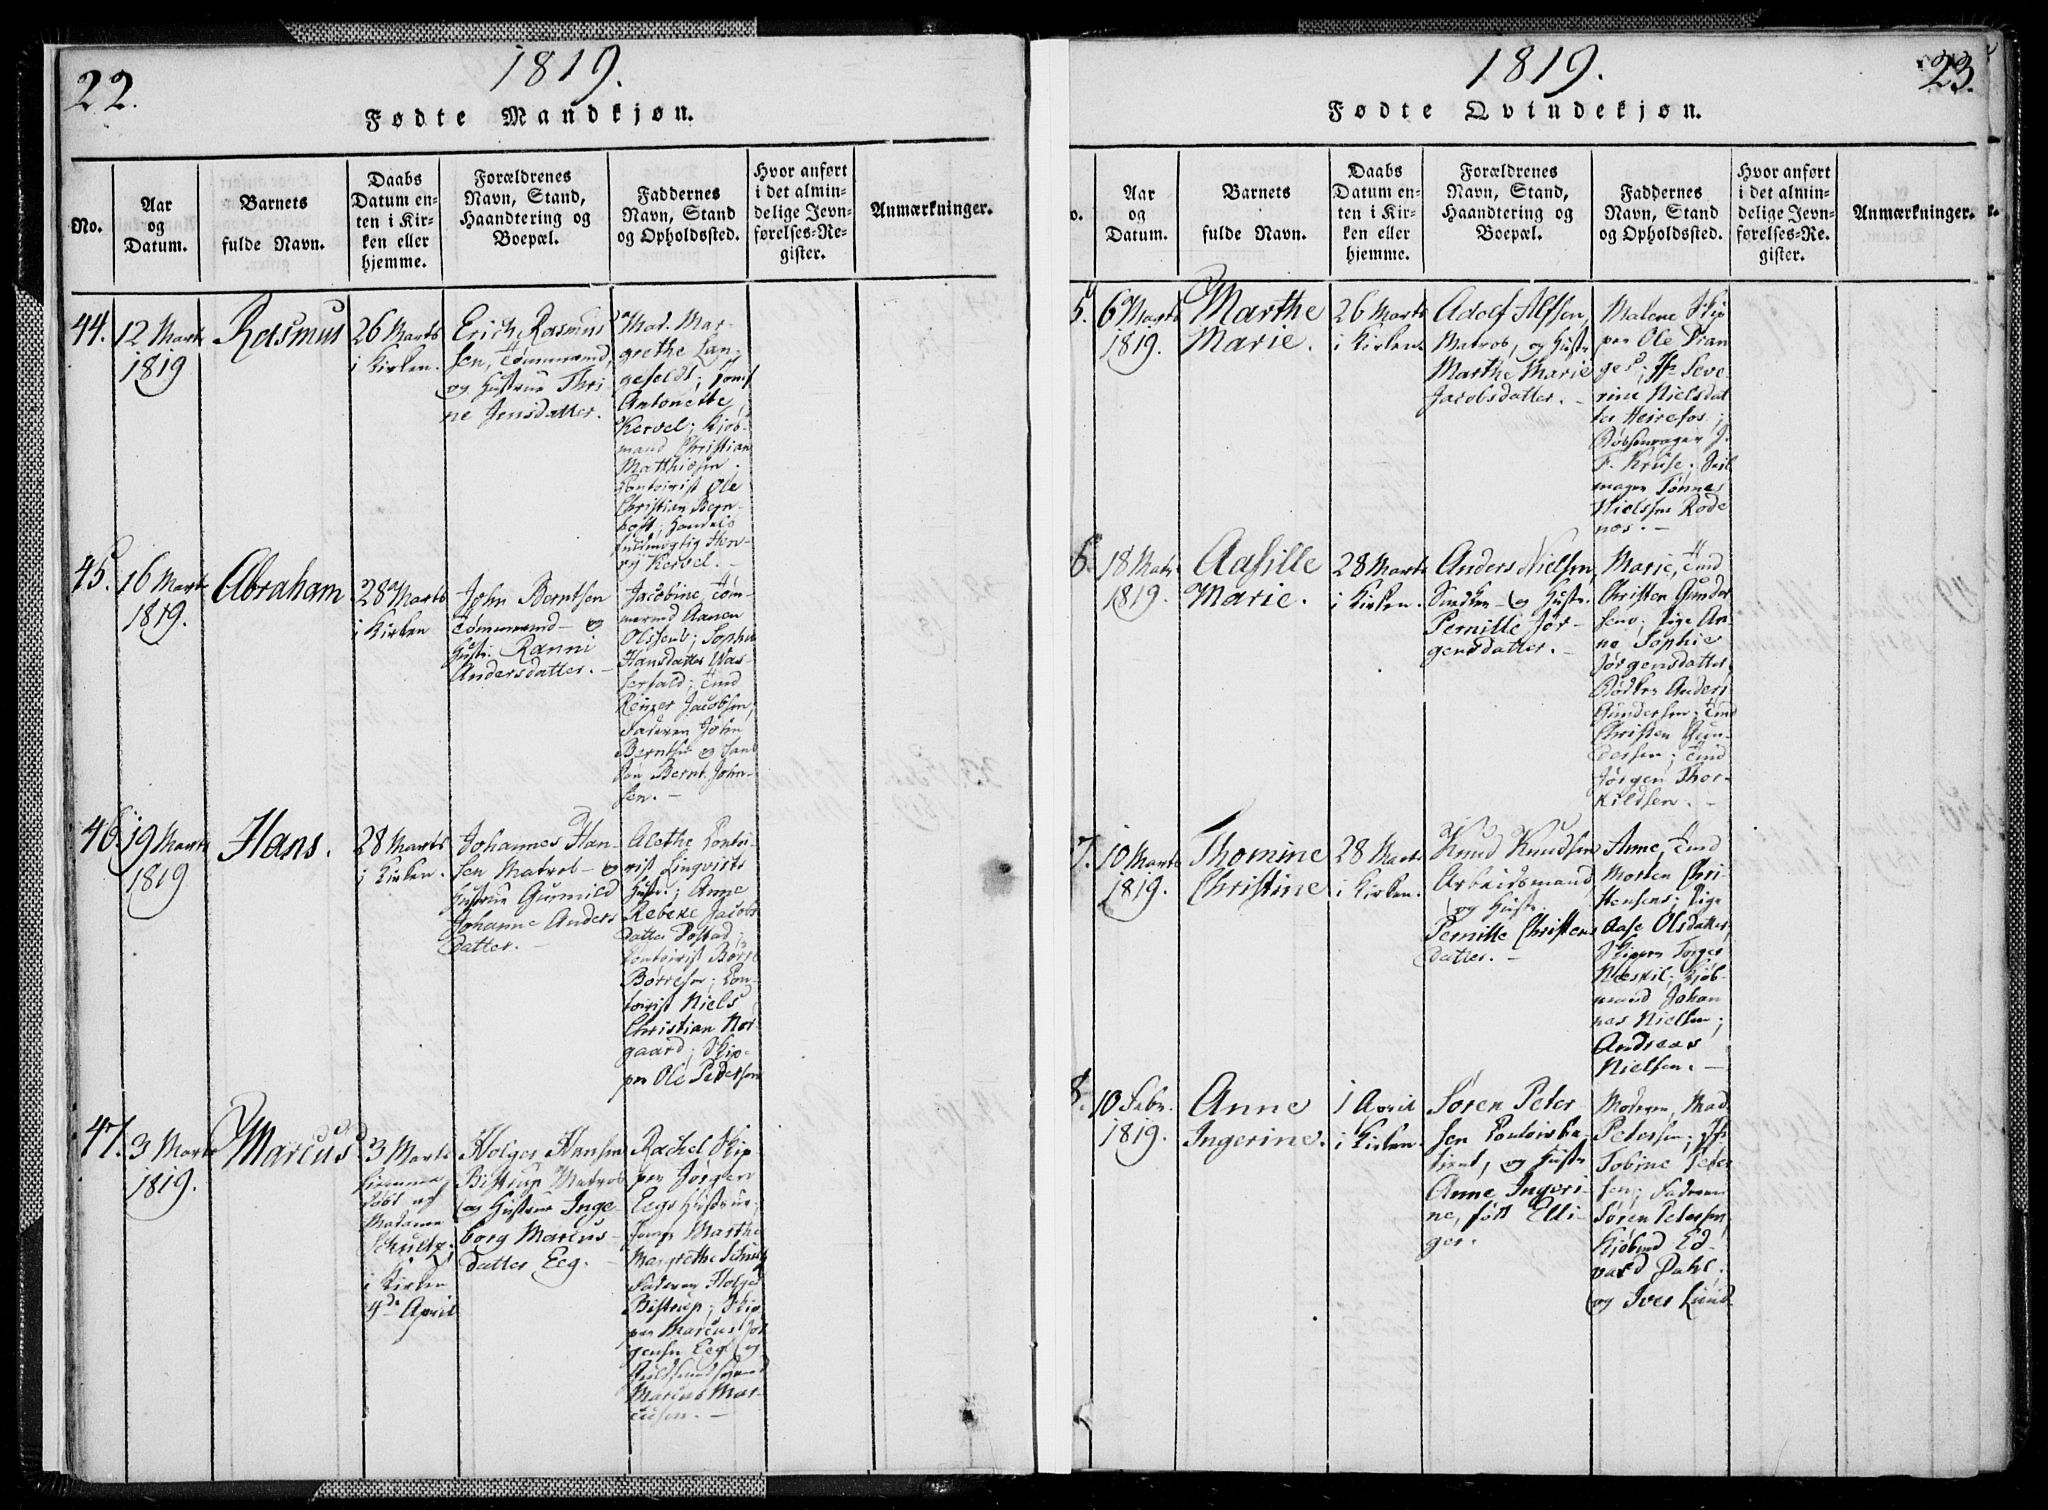 22.
1819.
Fødte Mandkjøn.
No.
Aar
og
Datum.
Barnets
fulde Navn.
Daabs
Datum en-
ten i Kir-
ken eller
hjemme.
Forældrenes
Navn, Stand,
Haandtering og
Boepæl.
Faddernes
Navn, Stand
og Opholdssted.
Hvor anført
i det almin-
delige Jevn-
førelses-Re-
gister.
Anmærkninger.
44.
12 Marts
1819
Rasmus
26 Marts
i Kirken.
Erich Rasmus
sen, Tømmermd,
og Hustrue Thri
ne Jensdatter.
Mad. Mar-
grethe Lan-
gefeldt; Jomf
Antonette
Kervel; Kjøb-
mand Christian
Matthiesen;
Contoirist Ole
Christian Bern-
hoft; Handels
fuldmægtig Hen-
ry Kervel. -
45.
16 Marts
1819.
Abraham
28 Marts
i Kirken
John Berntsen
Tømmermd - og
Hustr. Ranni
Andersdatter. -
Jacobine, Tøm-
mermd Aanen
Olsens; Sophie
Hansdatter Was-
serfald; Tmd
Reinzer Jacobsen;
Faderen John
Berntsen og hans
Søn Bernt John-
sen. -
46.
19 Marts
1819
Hans.
28 Marts
i Kirken.
Johannes Han
sen Matros - og
Hustrue Gunnild
Johanne Anders
datter. -
Alethe Contoi-
rist Linqvists
Hustr.; Anne
Rebekke Jacobs
datter Postad;
Contoirist Børre
Børresen; Con-
toirist Niels
Christian Nør
gaard; Skip-
per Ole Pedersen
47.
3 Marts
1819.
Marcus
3 Marts
hiemme
døbt af
Madame
Schultz;
i Kirken
4de April
Holger Hansen
Bistrup Matros
og Hustrue Inge-
borg Marcus-
datter Eeg. -
Rachel Skip
per Jørgen
Eegs Hustrue;
Jomf Marthe
Margrethe Schultz
Faderen Holger
Bistrup; Skip-
per Marcus Jør
gensen Eeg og
Marcus Mar-
cusen. -
1819.
23.
Fødte Qvindekjøn.
o.
Aar
og
Datum.
Barnets
fulde Navn.
Daabs
Datum en-
ten i Kir-
ken eller
hjemme.
Forældrenes
Navn, Stand,
Haandtering og
Boepæl.
Faddernes
Navn, Stand
og Opholdssted.
Hvor anført
i det almin-
delige Jevn-
førelses-Re-
gister.
Anmærkninger.
5.
6 Marts
1819.
Marthe
Marie.
26 Marts
i Kirken.
Adolf Alfsen,
Matros, og Hustr
Marthe Marie
Jacobsdatter. -
Malene Skip
per Ole Tran
ges; Jfr Seve-
rine Nielsdat
ter Heirefos;
Købsmager J.
F. Kruse; Seil
mager Tønnes
Nielsen Rode
nes. -
6.
18 Marts
1819.
Aasille
Marie.
28 Marts
i Kirken.
Anders Nielsen,
Snedker - og Hustr.
Pernille Jør-
gensdatter. -
Marie, Tmd
Christen Gunder
sens; Pige An-
ne Sophie
Jørgensdatter;
Bødker Anders
Gundersen; Tmd
Christen Gun-
dersen; Tmd
Jørgen Thor-
kildsen. -
7.
10 Marts
1819.
Thomine
Christine
28 Marts
i Kirken.
Knud Knudsen
Arbeidsmand,
og Hustr.
Pernille Christens
datter. -
Anne, Tmd
Morten Chri-
stensens; Pige
Aase Olsdatter,
Skipper Torger
Næskil; Kjøb-
mand Johan
nes Nielsen;
Andreas
Nielsen. -
8.
10 Febr.
1819.
Anne
Ingerine.
1 April
i Kirken.
Søren Peter
sen Contoirbe
tjent, og Hustr
Anne Ingeri-
ne, født Elli-
ger.
Moderen, Mad
Petersen; Jfr
Tobine Peter
sen; Faderen
Søren Petersen
Kiøbmd Ed-
vard Dahl.
og Iver Lund